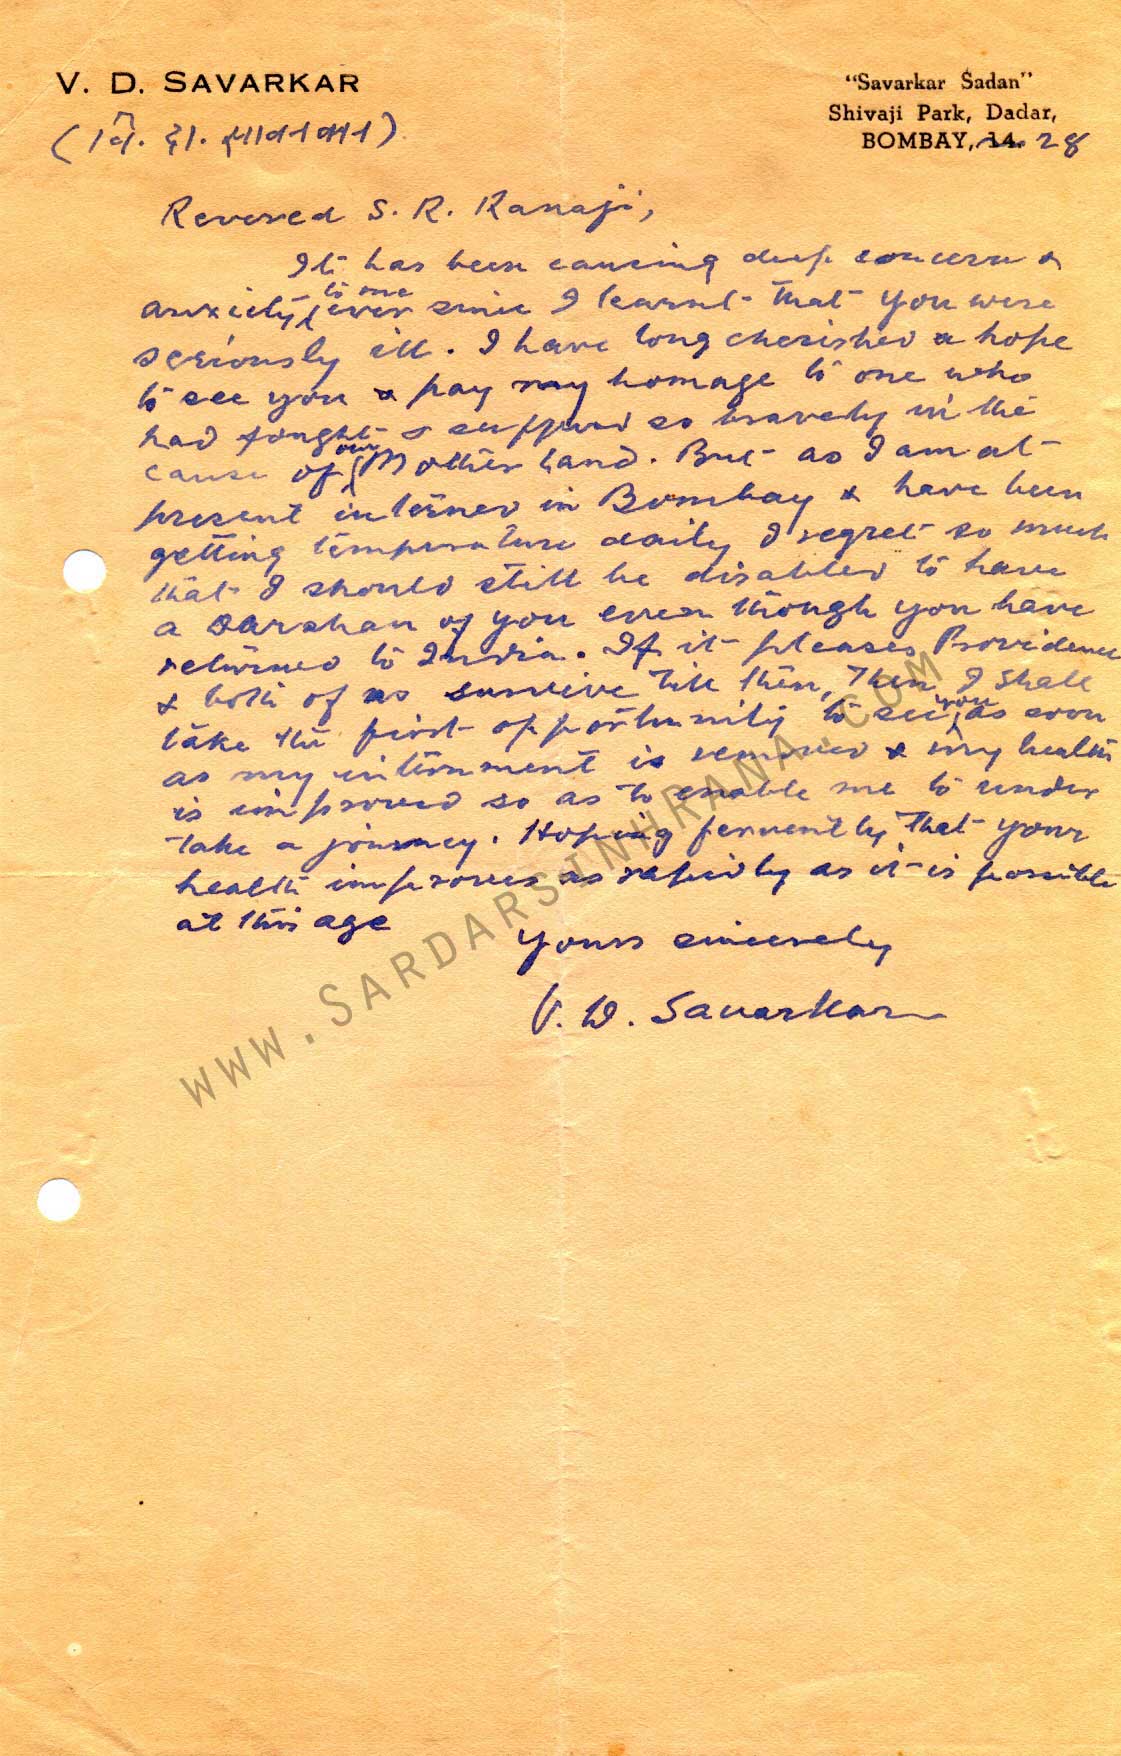 V. D. SAVARKAR
(वि. दा. सावरकर)
"Savarkar Sadan"
Shivaji Park, Dadar,
BOMBAY, 14. 28
Revered S. R. Ranaji,
It has been causing deep concern &
anxiety, to me ever since I learnt that you were
seriously ill. I have long cherished a hope
to see you & pay my homage to one who
had fought & suffered so bravely in the
cause of our Mother land. But as I am at
present interned in Bombay & have been
getting temperature daily I regret so much
that I should still be disabled to have
a darshan of you even though you have
returned to India. If it pleases Providence
& both of us survive till then, then I shall
take the first opportunity to see you as soon
as my internment is removed & my health
is improved so as to enable me to under
take a journey. Hoping fervently that your
health improves as rapidly as it is possible
at this age
Yours sincerely
V. D. Savarkar
www.SARDARSINHRANA.COM